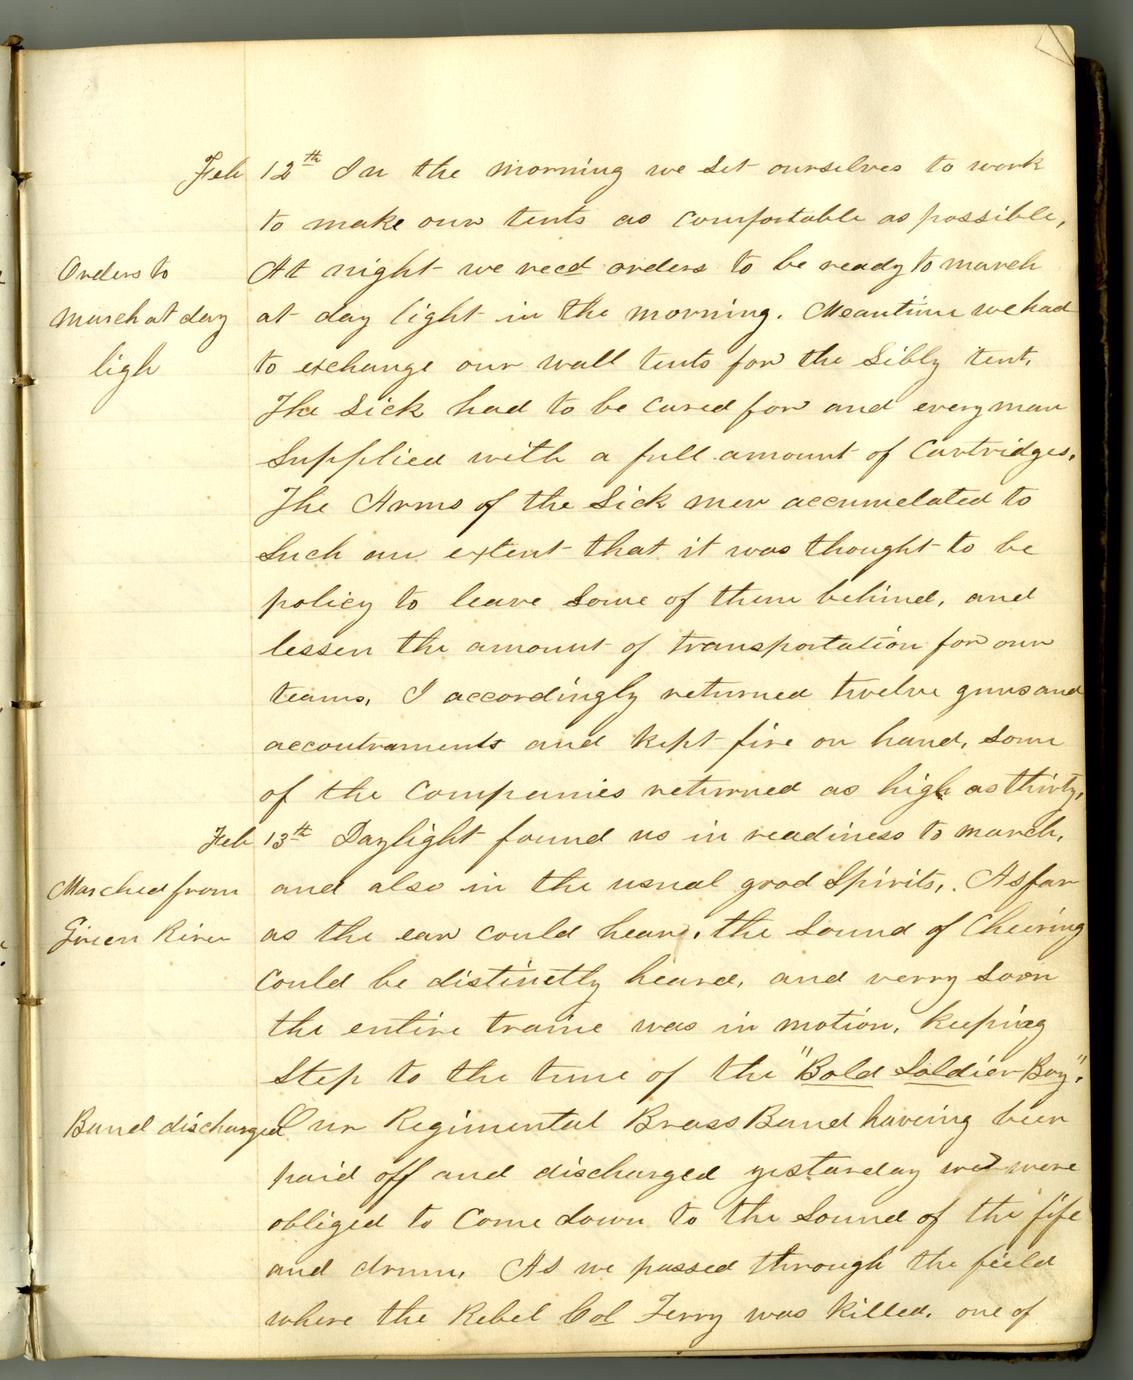 Feb 12th In the morning we set ourselves to work
to make our tents as comfortable as possible,
Orders to
At night we recd orders to be ready to march
march at day
at day light in the morning. Meantime we had
ligh
to exchange our wall tents for the Sibly tent.
The Sick had to be cared for and every man
Supplied with a full amount of Cartridges.
The Arms of the Sick men accumelated to
Such an extent that it was thought to be
policy to leave Some of them behind, and
lessen the amount of transportation for our
teams, I accordingly returned twelve guns and
accoutraments and kept five on hand, Some
of the Companies returned as high as thirty,
Feb 13th Daylight found us in readiness to march,
Marched from
and also in the usual good Spirits,. As far
Green River
as the ear could hear, the Sound of Cheering
Could be distinctly heard, and verry Soon
the entire traine was in motion, keeping
Step to the tune of the "Bold Soldier Boy".
Band discharged
Our Regimental Brass Band haveing been
paid off and discharged yestarday we were
obliged to Come down to the Sound of the fife
and drum, As we passed through the field
where the Rebel Col Terry was killed, one of